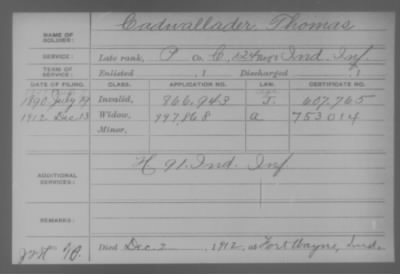 NAME OF SOLDIER: Cadwallader, Thomas
SERVICE: Late rank, P Co. C, 124 Reg't Ind. Inf.
TERM OF SERVICE: Enlisted , 1 Discharged , 1
DATE OF FILING. CLASS. APPLICATION NO. LAW. CERTIFICATE NO.
1890 July 19 Invalid, 866,943 J. 607,765
1912 Dec. 13 Widow, 997,868 a 753014
Minor,
ADDITIONAL SERVICES: K 91. Ind. Inf
REMARKS:
Died Dec. 2 , 1912, at Fort Wayne, Ind.